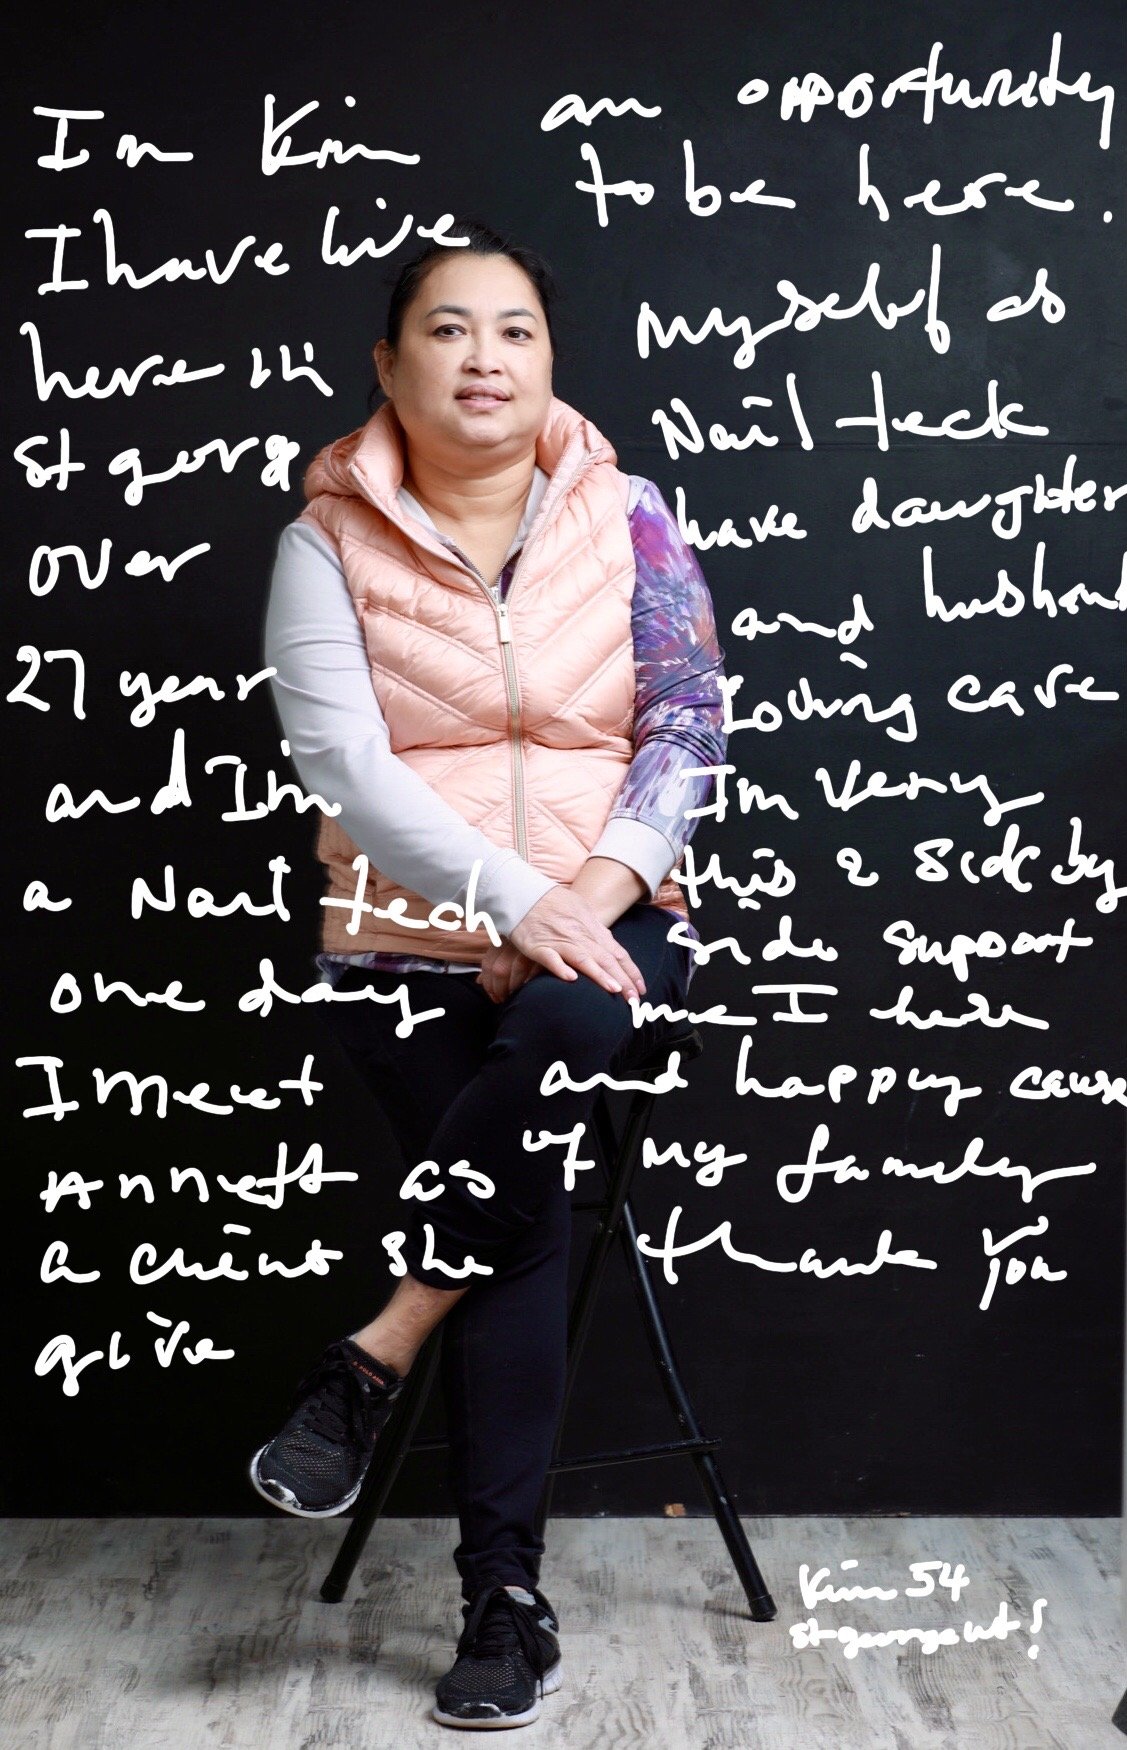 I'm Kim
I have live
here in
St george
over
27 year
and I'm
a Nail tech
one day
I meet
Annett as
a client she
give
an opportunity
to be here.
myself as
Nail teck
have daughter
and husband
loving care
I'm very
this 2 side by
side support
me I here
and happy cause
of my family
thank you
Kim 54
St george ut!